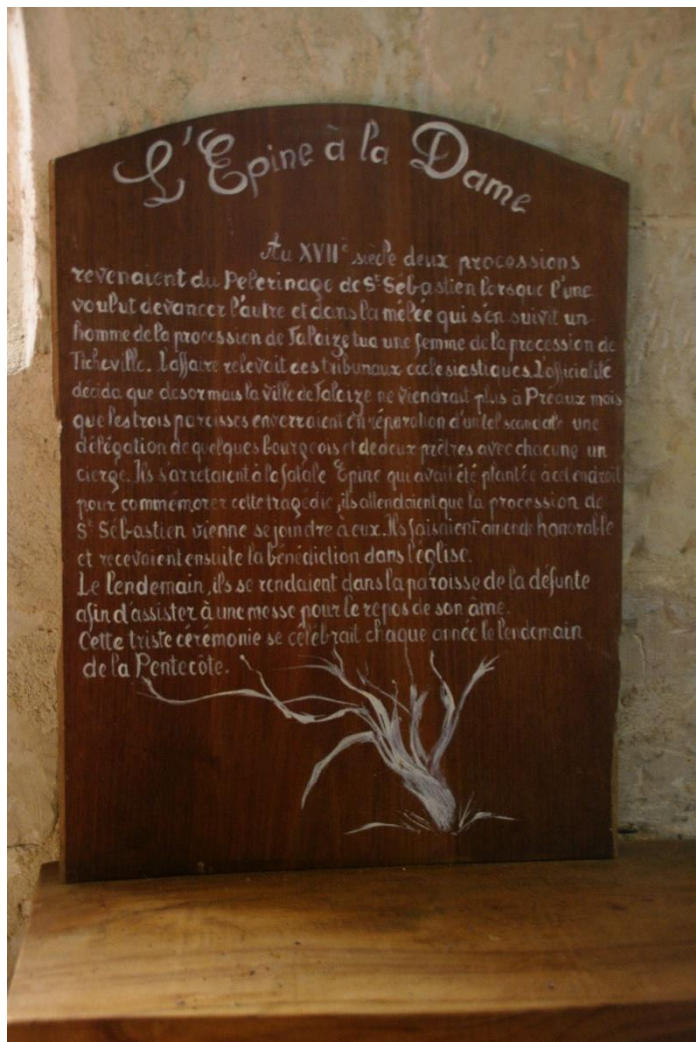 L'Epine à la Dame
Au XVII° siècle deux processions
revenaient du Pelerinage de St Sébastien lorsque l'une
voulut devancer l'autre et dans la mêlée qui s'en suivit un
homme de la procession de Falaize tua une femme de la procession de
Ticheville. L'affaire relevait des tribunaux ecclesiastiques L'officialité
décida que desormais la ville de Falaize ne viendrait plus à Preaux mais
que les trois paroisses enverraient en réparation d'un tel scandale une
délégation de quelques bourgeois et de deux prêtres avec chacune un
cierge. Ils s'arretaient à la fatale Epine qui avait été plantée à cet endroit
pour commémorer cette tragédie, ils attendaient que la procession de
St Sébastien vienne se joindre à eux. Ils faisaient amende honorable
et recevaient ensuite la bénédiction dans l'église.
Le lendemain, ils se rendaient dans la paroisse de la défunte
afin d'assister à une messe pour le repos de son âme.
Cette triste cérémonie se célébrait chaque année le lendemain
de la Pentecôte.